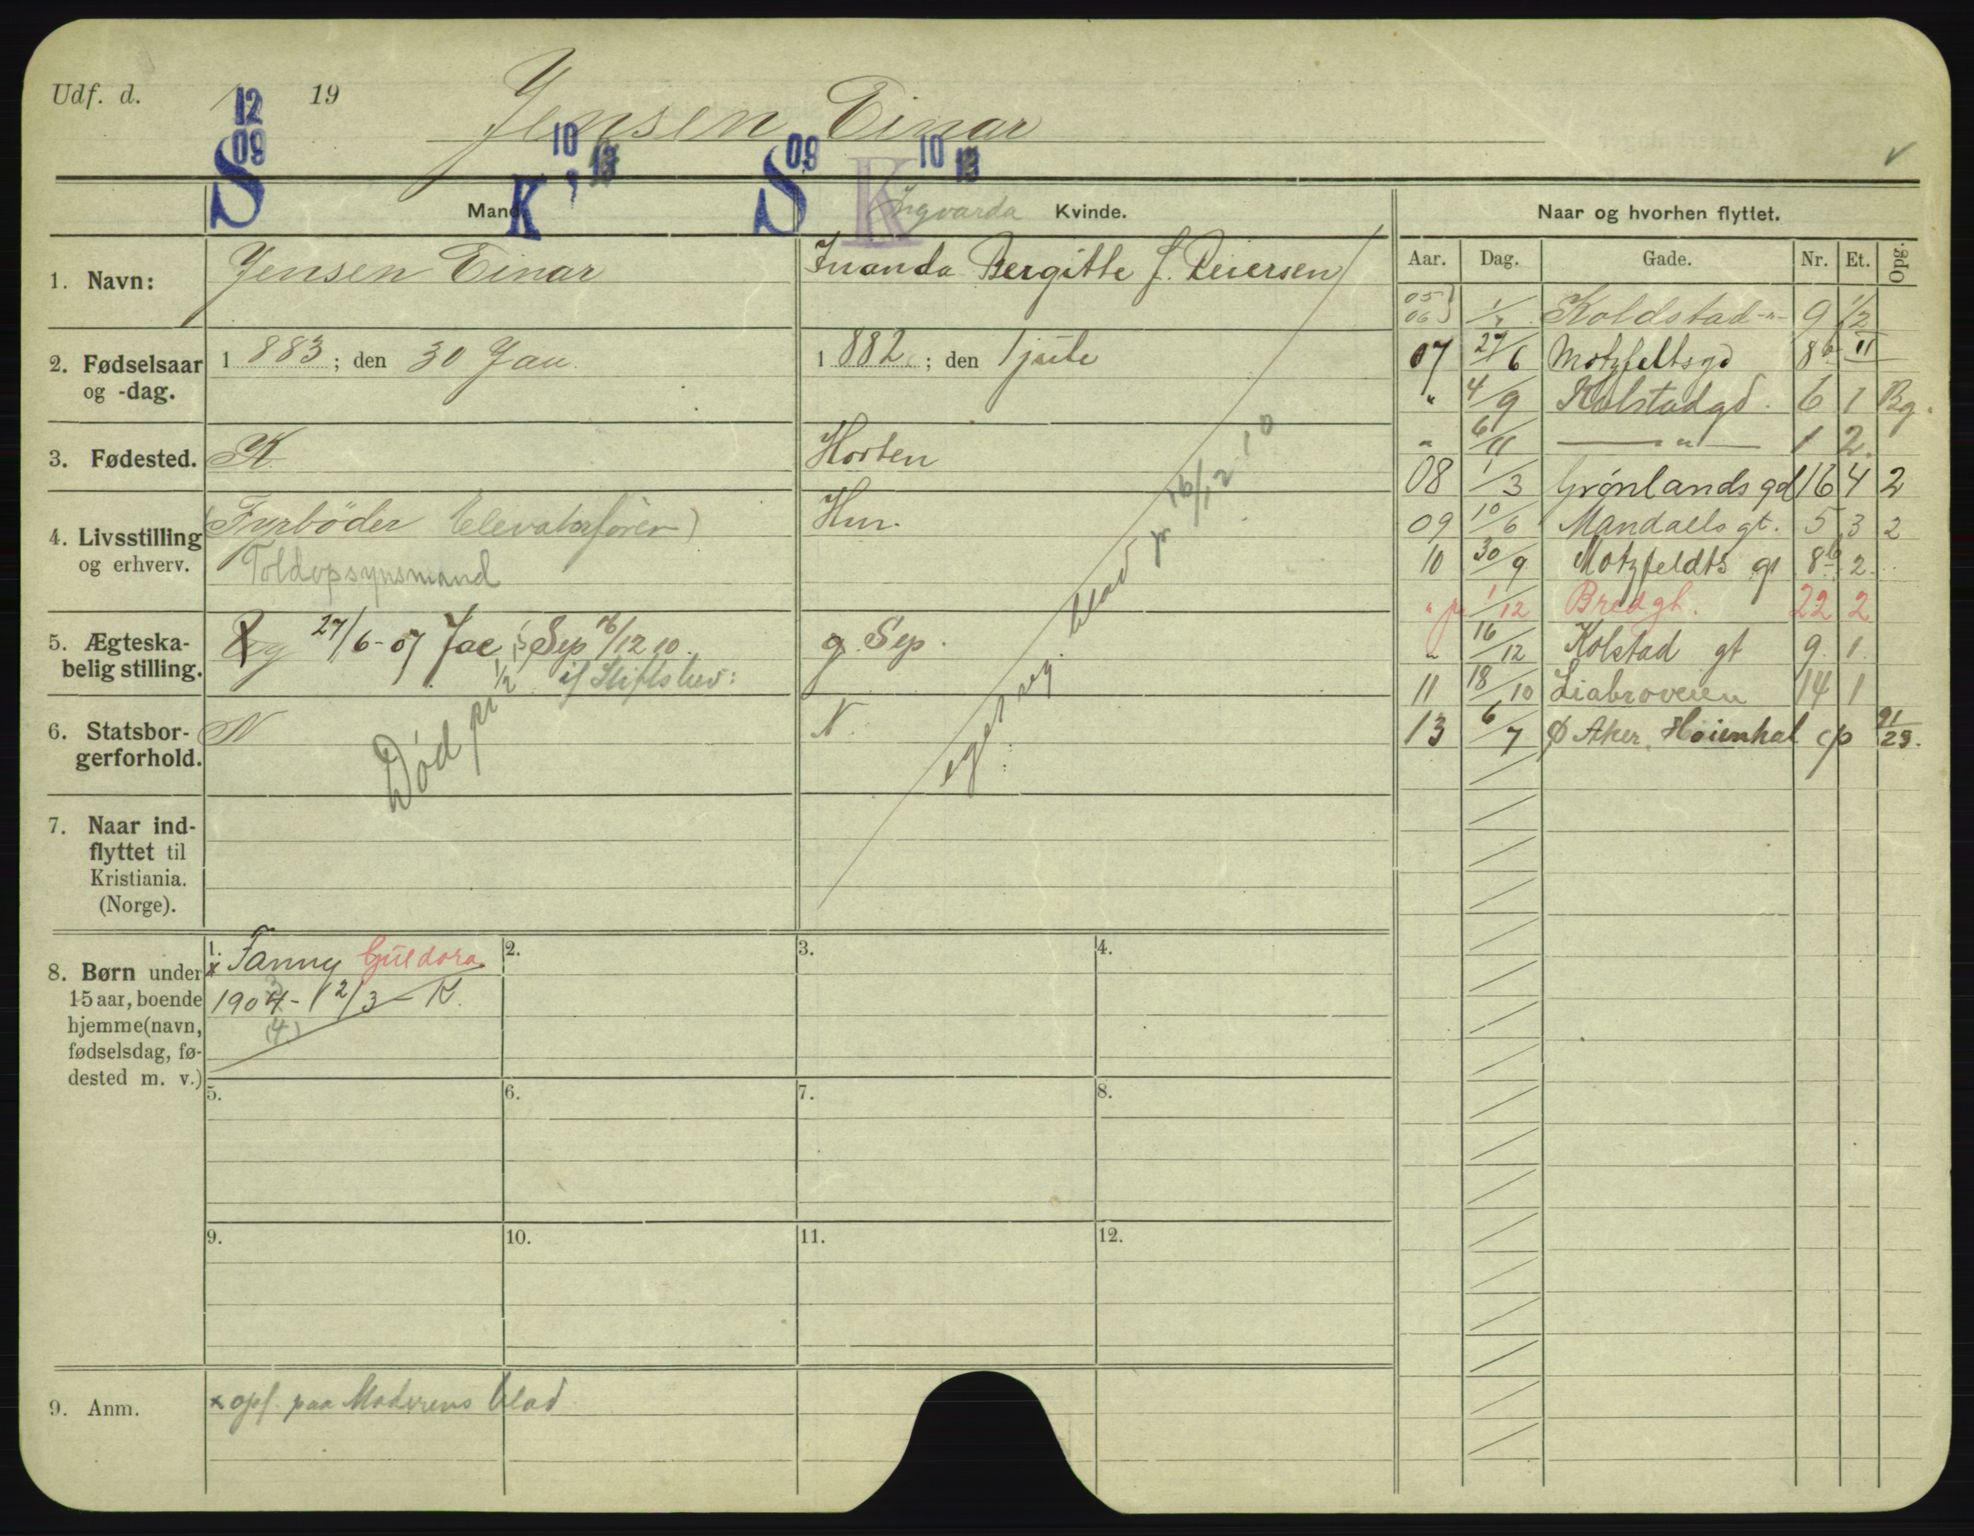 Udf. d. 19
Jensen Einar
12
09
S
10
K
13
09
S
10
K
Mand.
Ingvarda Kvinde.
Naar og hvorhen flyttet.
1. Navn:
Jensen Einar
Bergitte f. Reiersen
2. Fødselsaar
og -dag.
1883; den 30 Jan
1882; den 1 jule
3. Fødested.
K
Horten
4. Livsstilling
og erhverv.
(Fyrbøder Elevatorfører)
Toldopsynsmand
Hur.
5. Ægteska-
belig stilling.
g 27/6-07 Jac Sep 16/12 10.
if Stiftsbev:
g. Sep.
6. Statsbor-
gerforhold.
N
Død pr 1/2
N.
eget reg. blad pr 16/12 10
7. Naar ind-
flyttet til
Kristiania.
(Norge).
8. Børn under
15 aar, boende
hjemme (navn,
fødselsdag, fø-
dested m. v.)
1. x Fanny Guldora
1904 - 12/3 - K.
(4)
2.
3.
4.
5.
6.
7.
8.
9.
10.
11.
12.
9. Anm.
x opf. paa Moderens blad
Aar. Dag. Gade. Nr. Et. Opg.
05
06 } Koldstad-"- 9 1/2
07 27/6 Motzfeltsgd 8b II
" 4/9 Kolstadgd. 6 1 Bg.
" 6/11 — " — 1 2.
08 1/3 Grønlandsgd 16 4 2
09 10/6 Mandalls gt. 5 3 2
10 30/9 Motzfeldts gt 8b 2.
" pr 1/12 Bredgt. 22 2
" 16/12 Kolstad gt 9. 1.
11 18/10 Liabroveien 14 1
13 6/7 Ø Aker, Høienhal cp 91/23.